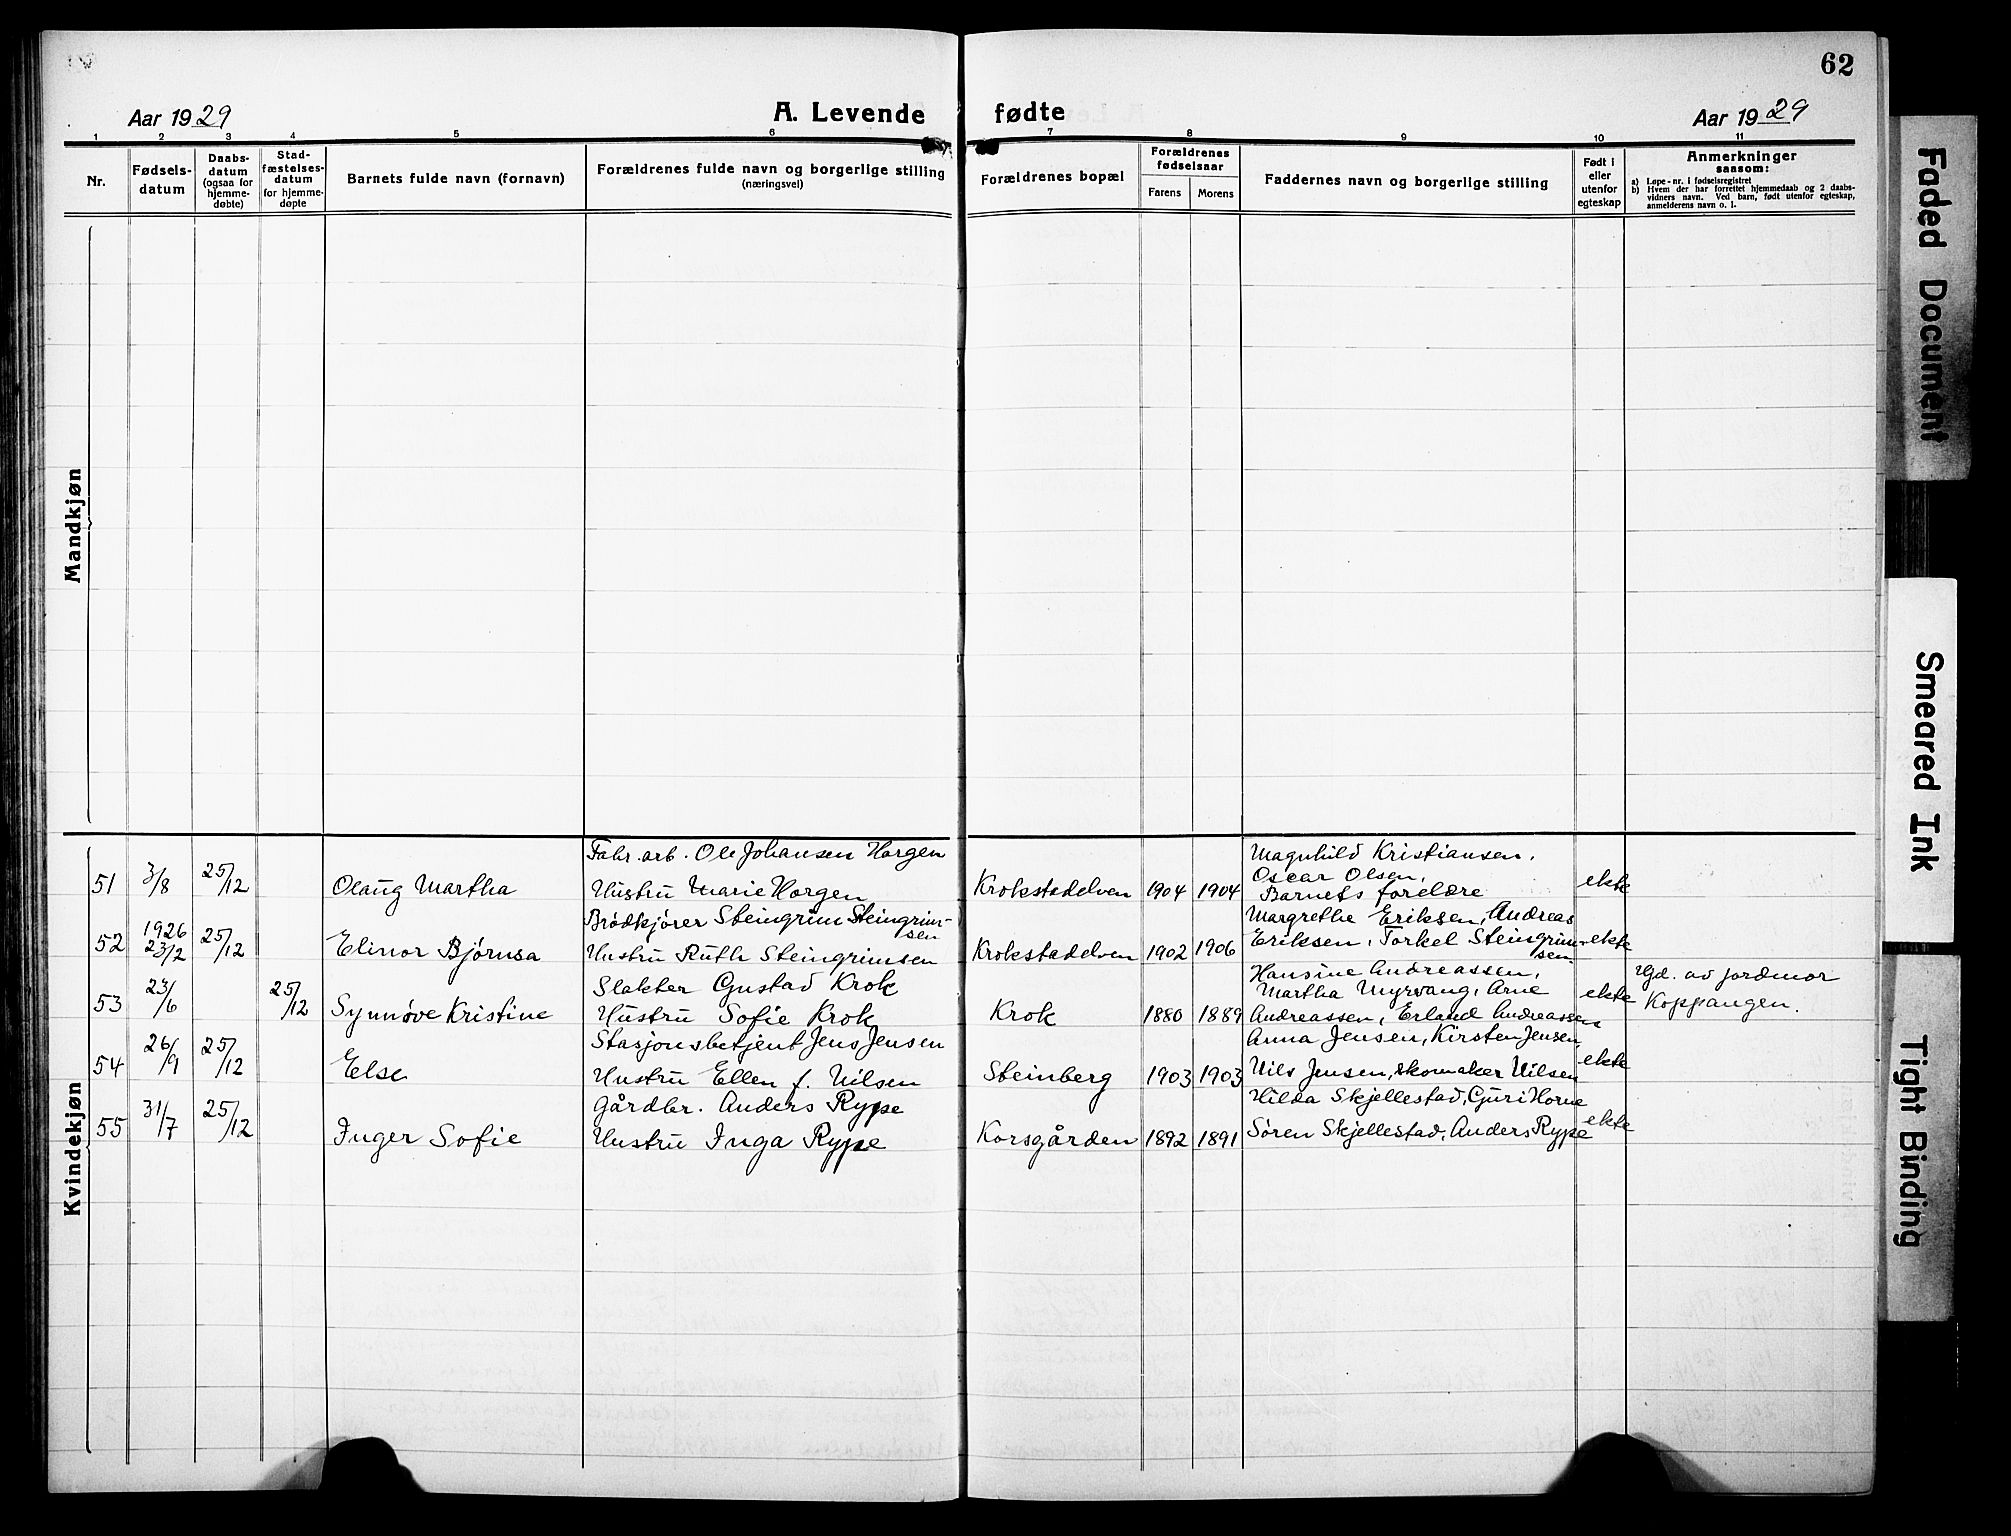 62
Aar 1929
A. Levende fødte
Aar 1929
1 2 3 4 5 6 7 8 9 10 11
Nr.
Fødsels-
datum
Daabs-
datum
(ogsaa for
hjemme-
døbte)
Stad-
fæstelses-
datum
for hjemme-
døpte
Barnets fulde navn (fornavn)
Forældrenes fulde navn og borgerlige stilling
(næringsvei)
Forældrenes bopæl
Forældrenes
fødselsaar
Farens
Morens
Faddernes navn og borgerlige stilling
Født i
eller
utenfor
egteskap
Anmerkninger
saasom:
a) Løpe-nr. i fødselsregistret
b) Hvem der har forrettet hjemmedaab og 2 daabs-
vidners navn. Ved barn, født utenfor egteskap,
anmelderens navn o. l.
Mandkjøn
Kvindekjøn
51 3/8 25/12 Olaug Martha
Fabr. arb. Ole Johansen Horgen
Hustru Marie Horgen
Krokstadelven 1904 1904
Magnhild Kristiansen,
Oscar Olsen,
Barnets forelære
ekte
52 1926 23/2 25/12 Elinor Bjørnsa
Brødkjører Steingrim Steingrim-
sen
Hustru Ruth Steingrimsen
Krokstadelven 1902 1906
Margrethe Eriksen, Andreas
Eriksen, Torkel Steingrim-
sen
ekte
53 23/6 25/12 Synnøve Kristine
Slakter Gustad Krok
Hustru Sofie Krok
Krok 1880 1889
Hansine Andreassen,
Martha Myrvang, Arne
Andreassen, Erland Andreassen
ekte
Gd. av jordmor
Koppangen.
54 26/9 25/12 Else
Stasjonsbetjent Jens Jensen
Hustru Ellen f. Nilsen
Steinberg 1903 1903
Anna Jensen, Kirsten Jensen,
Nils Jensen, skomaker Nilsen
ekte
55 31/7 25/12 Inger Sofie
Gårdbr. Anders Rype
Hustru Inga Rype
Korsgården 1892 1891
Hilda Skjellestad, Guri Horne
Søren Skjellestad, Anders Rype
ekte
Faded Document
Smeared Ink
Tight Binding